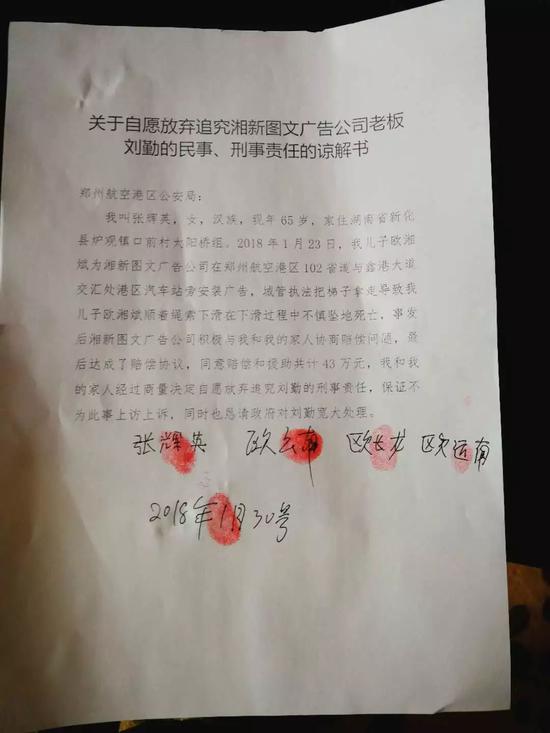 关于自愿放弃追究湘新图文广告公司老板
刘勤的民事、刑事责任的谅解书
郑州航空港区公安局：
我叫张辉英，女，汉族，现年 65 岁，家住湖南省新化
县炉观镇口前村太阳桥组。2018 年 1 月 23 日，我儿子欧湘
斌为湘新图文广告公司在郑州航空港区 102 省道与鑫港大道
交汇处港区汽车站旁安装广告，城管执法把梯子拿走导致我
儿子欧湘斌顺着绳索下滑在下滑过程中不慎坠地死亡，事发
后湘新图文广告公司积极与我和我的家人协商赔偿问题，最
后达成了赔偿协议，同意赔偿和援助共计 43 万元，我和我
的家人经过商量决定自愿放弃追究刘勤的刑事责任，保证不
为此事上访上诉，同时也恳请政府对刘勤宽大处理。
张辉英 欧云南 欧长龙 欧运南
2018年1月30号